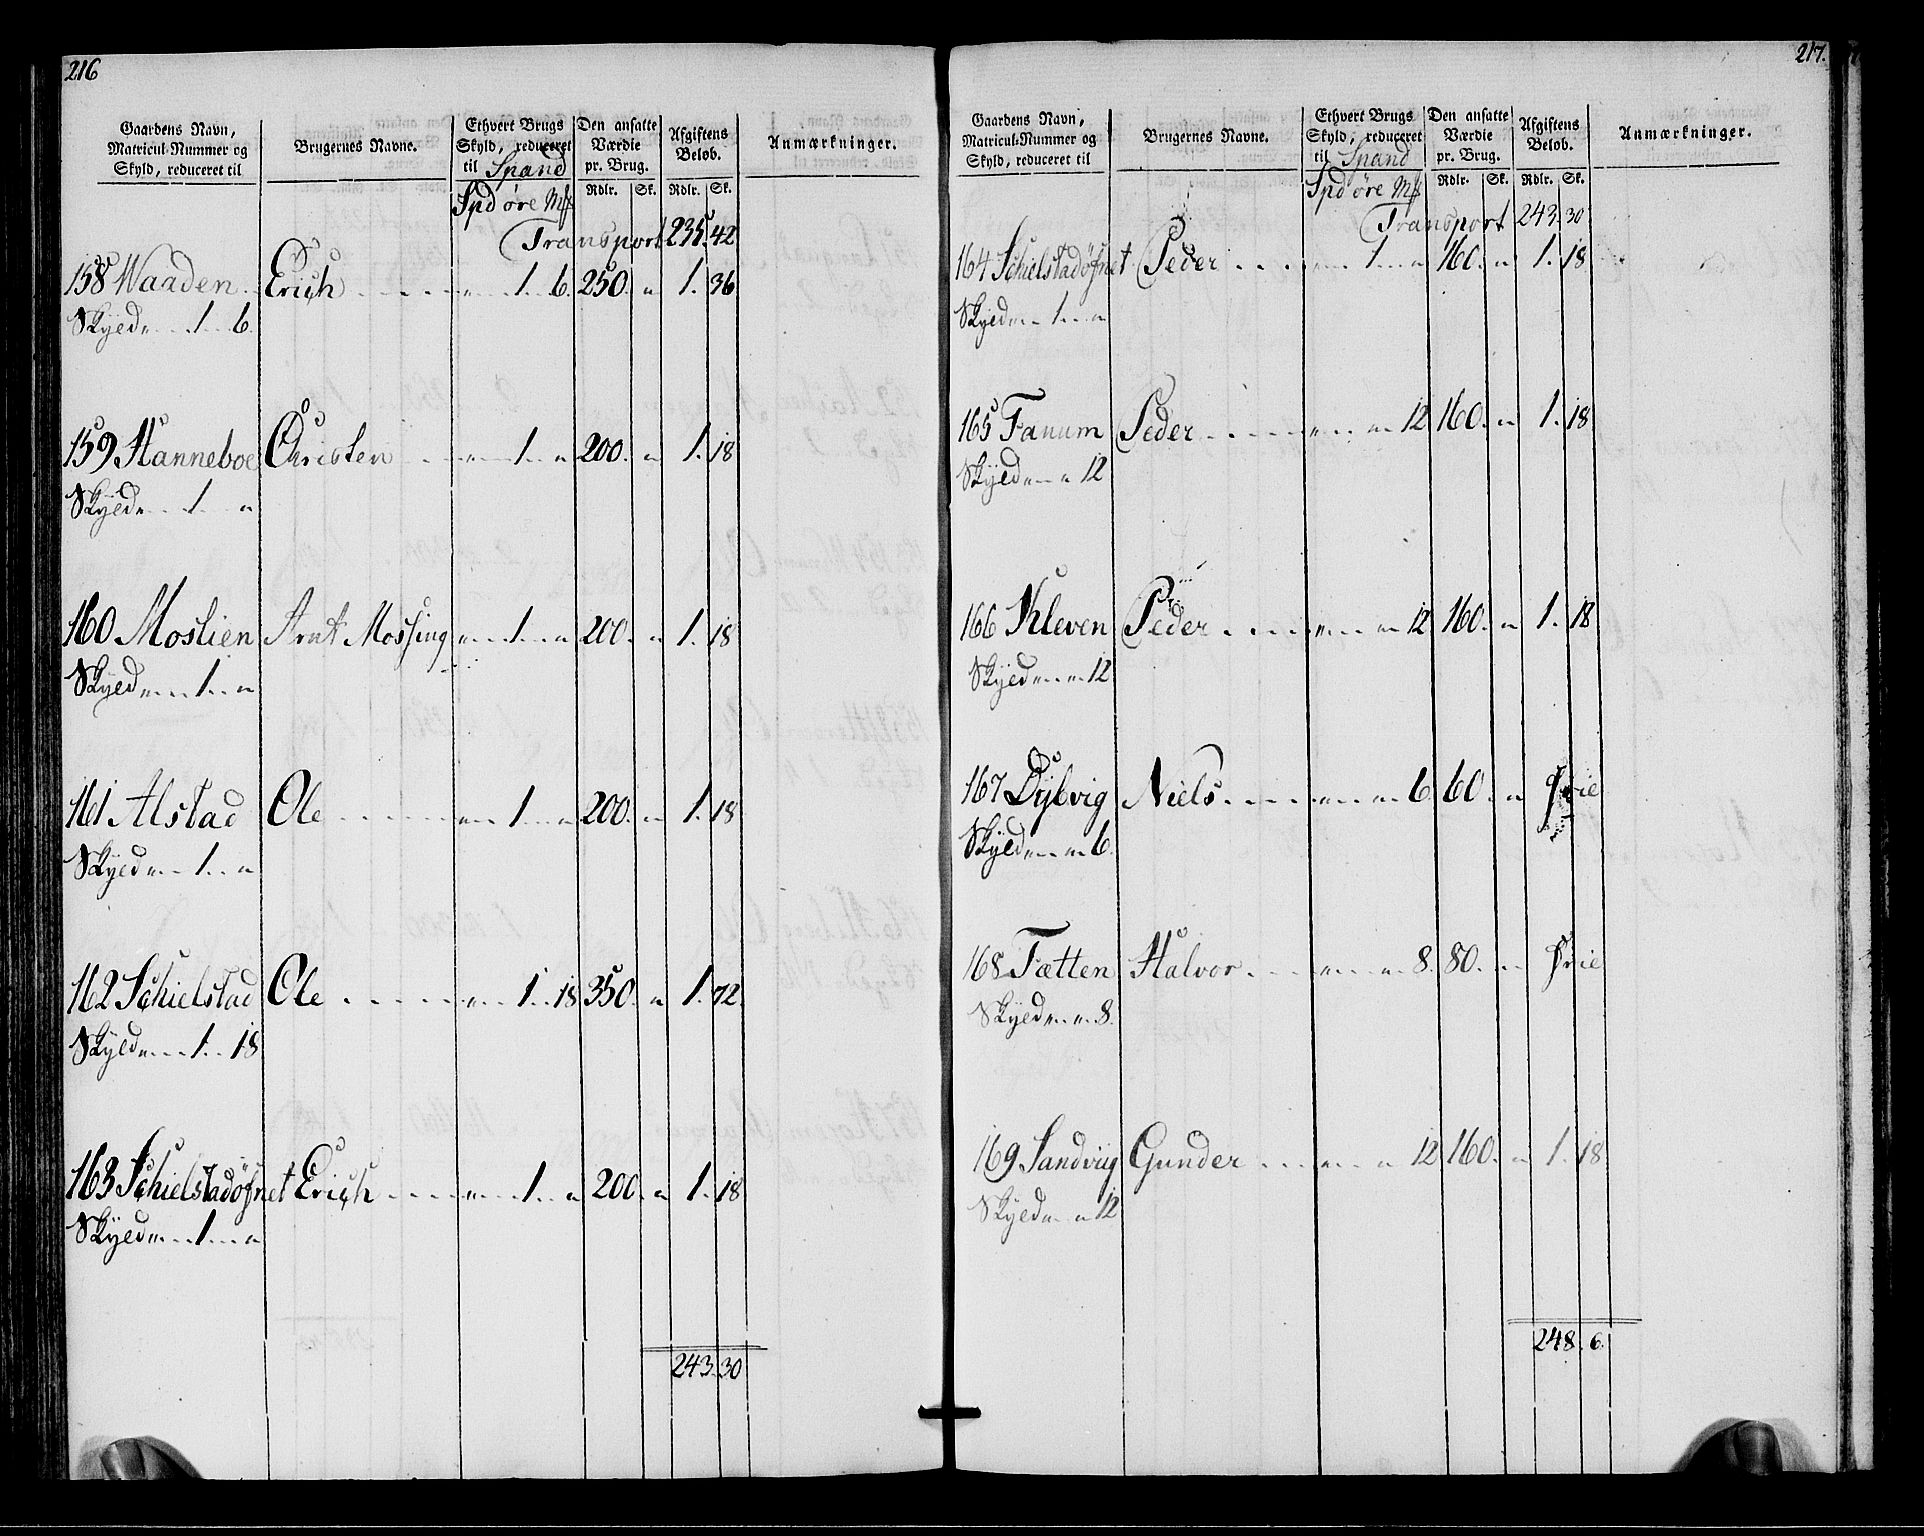 216
Gaardens Navn, Matricul-Nummer og Skyld, reduceret til
Brugernes Navne.
Ethvert Brugs Skyld, reduceret til Spand
Den ansatte Værdie pr. Brug.
Afgiftens Beløb.
Anmærkninger.
Spd øre Mk Rdlr. Sk. Rdlr. Sk.
Transport 235. 42
158 Waaden Erich . . . . „ . . 1 . 6. 250. „ 1. 36
Skyld „ . . 1 . . 6.
159 Hanneboe Christen . . „ . . 1 . . „ 200. „ 1. 18
Skyld „ . . 1 . . „
160 Moslien Arnt Mossing „ . . 1 . . „ 200. „ 1. 18
Skyld „ . . 1 . . „
161 Alstad Ole . . . . . „ . . 1 . . „ 200. „ 1. 18
Skyld „ . . 1 . . „
162 Schielstad Ole . . . . . „ . . 1 . . 18 350. „ 1. 72.
Skyld „ . . 1 . . 18
163 Schielstadøfnet Erich . . . . „ . . 1 . . „ 200. „ 1. 18
Skyld „ . . 1 . . „
243. 30
217.
Gaardens Navn, Matricul-Nummer og Skyld, reduceret til
Brugernes Navne.
Ethvert Brugs Skyld, reduceret til Spand
Den ansatte Værdie pr. Brug.
Afgiftens Beløb.
Anmærkninger.
Spd øre Mk Rdlr. Sk. Rdlr. Sk.
Transport 243. 30
164 Schielstadøfnet Peder . . . . „ . . 1 . . „ 160. „ 1. 18
Skyld „ . . 1 . . „
165 Fanum Peder . . . . „ . . „ 12 160. „ 1. 18
Skyld „ . . „ 12
166 Kleven Peder . . . . „ . . „ 12 160. „ 1. 18
Skyld „ . . „ 12
167 Dybvig Niels . . . . „ . . „ 6. 60. „ frie
Skyld „ . . „ 6.
168 Tætten Halvor . . . „ . . „ 8. 80. „ frie
Skyld „ . . „ 8.
169 Sandviig Gunder . . . „ . . „ 12 160. „ 1. 18
Skyld „ . . „ 12
248. 6.